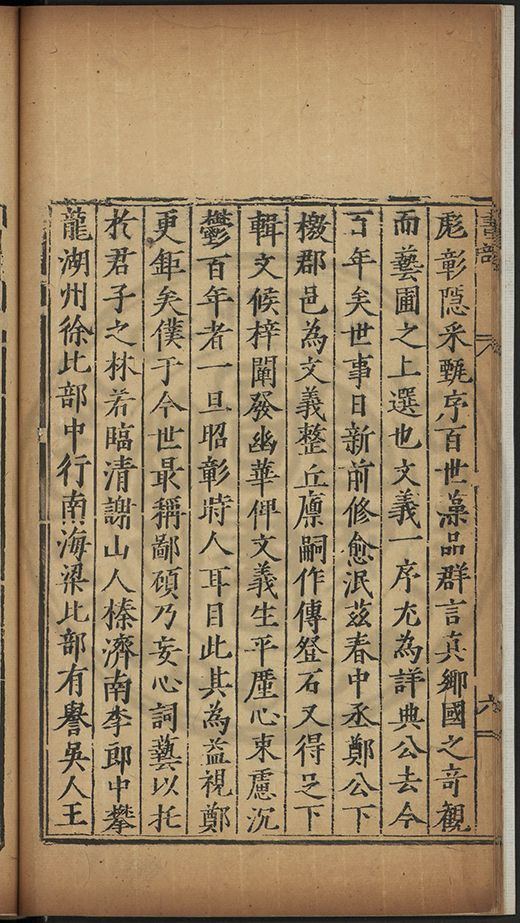 彪彰隱采甄序百世藻品群言真鄉國之竒觀
而藝圃之上選也文義一序尤為詳典公去今
百年矣世事日新前修愈泯茲春中丞鄭公下
檄郡邑為文義整丘廪嗣作傳登石又得足下
輯文候梓闡發幽華俾文義生平壓心束慮沉
鬱百年者一旦昭彰時人耳目此其為益視鄭
更鉅矣僕于今世最稱鄙碩乃妄心詞藝以托
於君子之林若臨清謝山人榛濟南李郎中攀
龍湖州徐比部中行南海梁比部有譽吳人王
書部
六